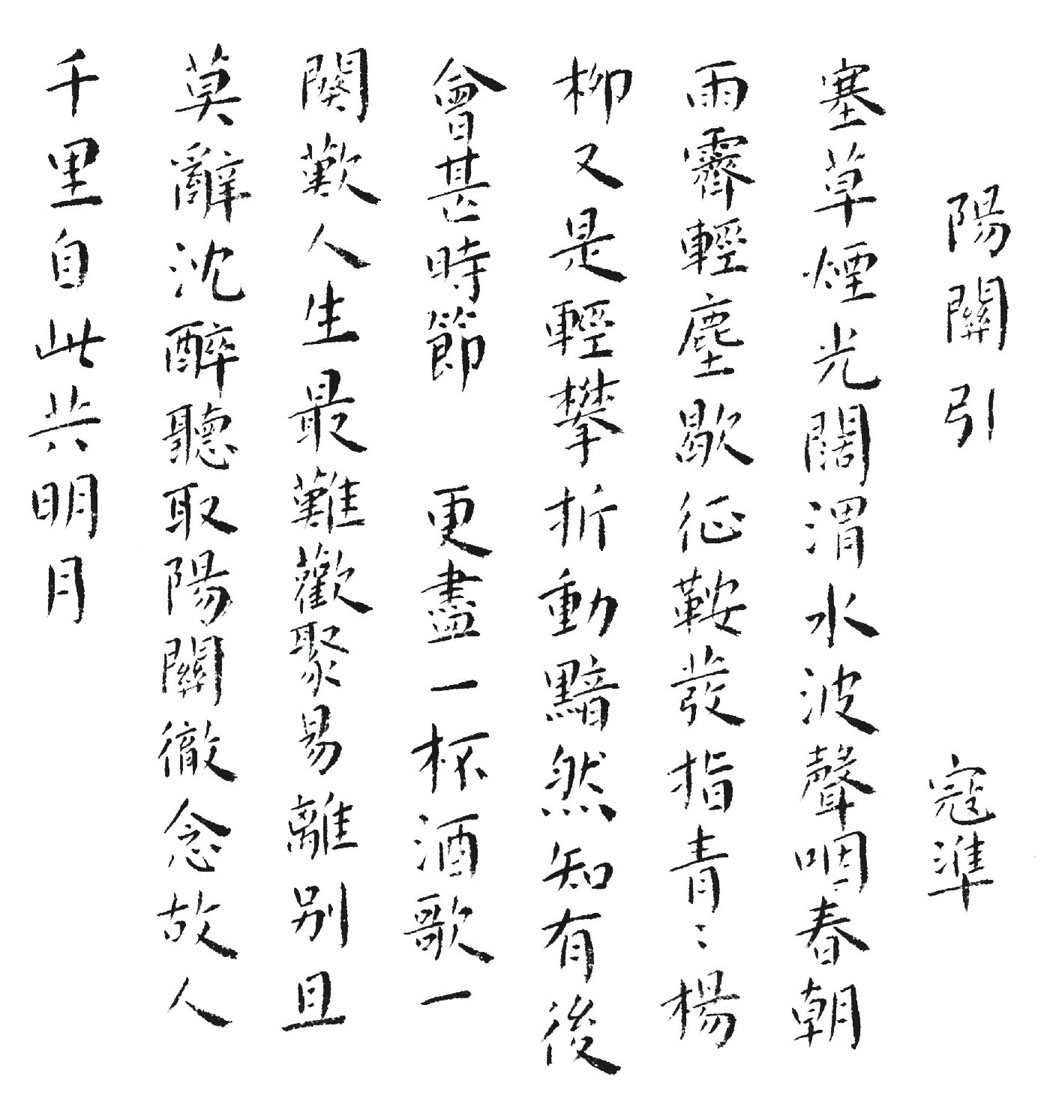 陽關引 寇準
塞草煙光闊渭水波聲咽春朝
雨霽輕塵歇征鞍發指青〻楊
柳又是輕攀折動黯然知有後
會甚時節 更盡一杯酒歌一
闋歎人生最難歡聚易離別且
莫辭沈醉聽取陽關徹念故人
千里自此共明月